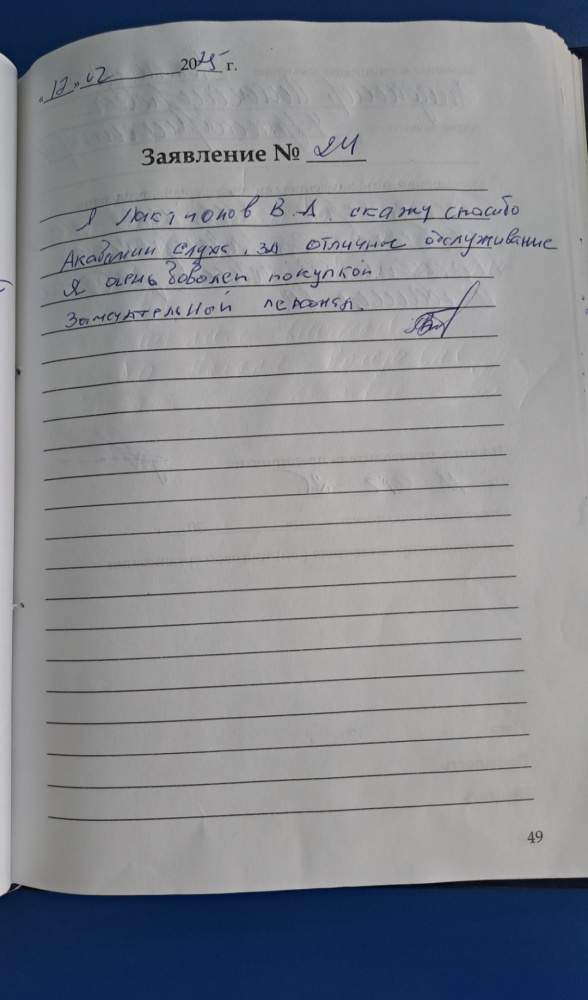 "12" 02 2025 г.
Заявление № 24
Я В. А. скажу спасибо
Академии слуха, за отличное обслуживание
Я очень доволен покупкой
Замечательной персонал.
49